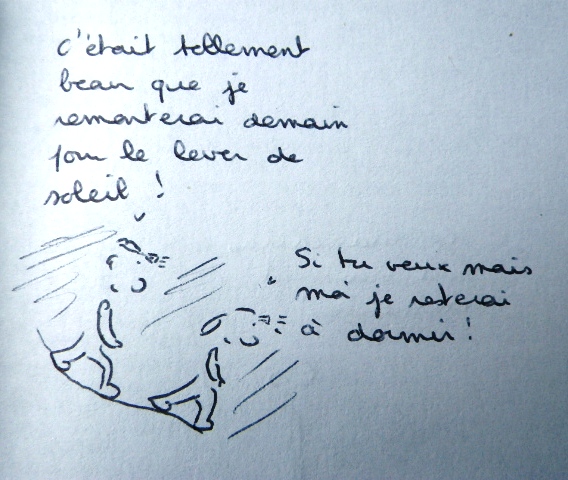 C'était tellement
beau que je
remonterai demain
pour le lever de
soleil !
Si tu veux mais
moi je resterai
à dormir !